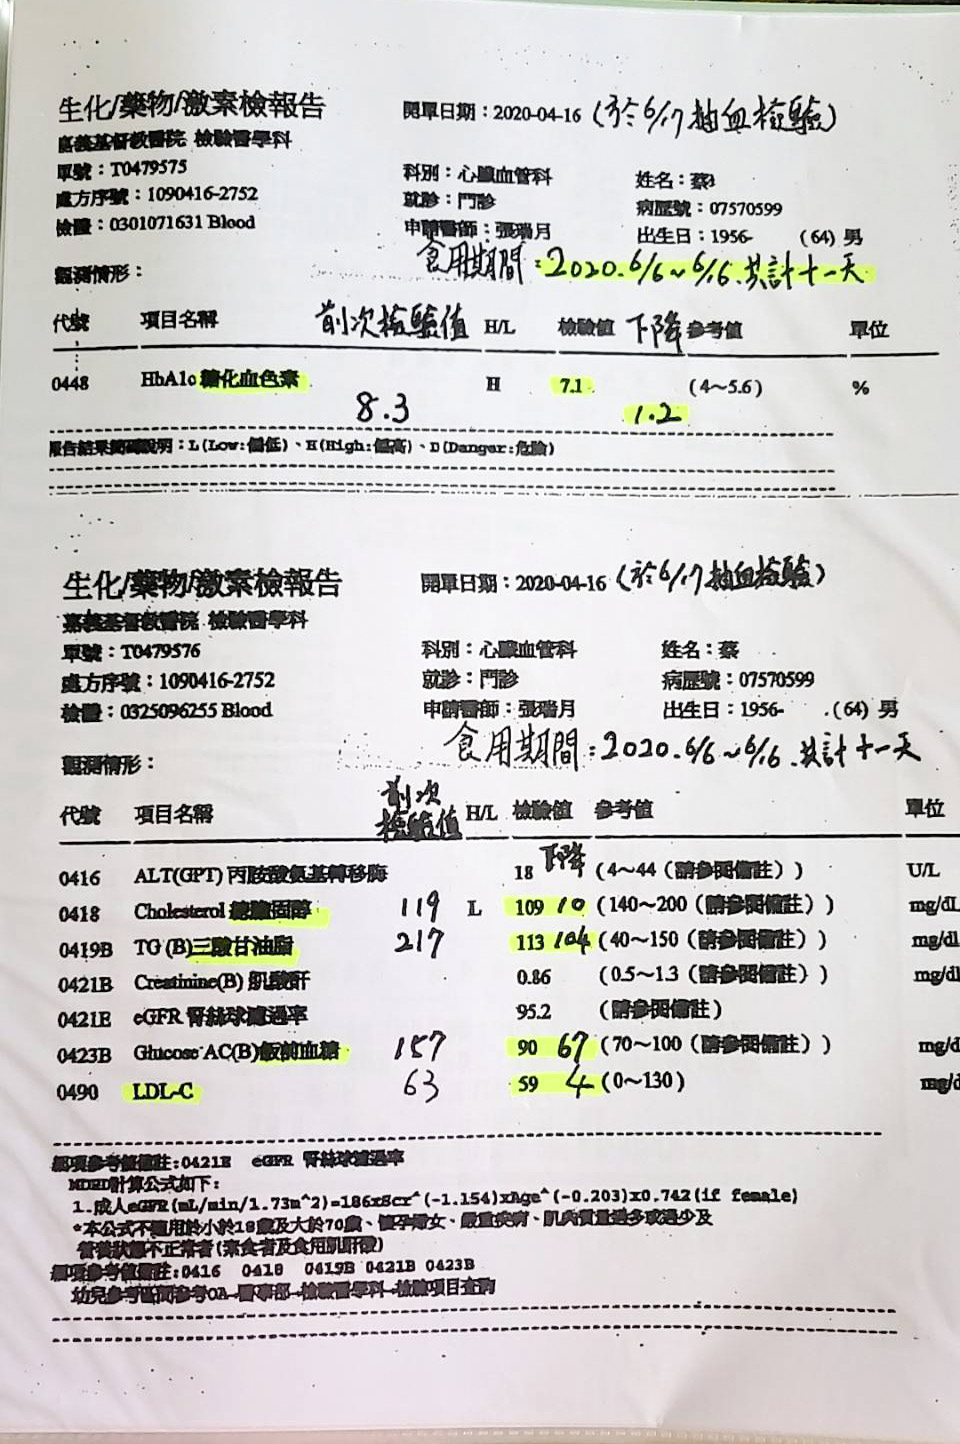 生化/藥物/激素檢報告
開單日期：2020-04-16 (於6/17抽血檢驗)
嘉義基督教醫院 檢驗醫學科
單號：T0479575
科別：心臟血管科
姓名：蔡
處方序號：1090416-2752
就診：門診
病歷號：07570599
檢體：0301071631 Blood
申請醫師：張瑞月
出生日：1956- (64) 男
食用期間：2020.6/6~6/16.共計十一天
觀測情形：
代號 項目名稱 前次檢驗值 H/L 檢驗值 下降 參考值 單位
0448 HbA1c 糖化血色素 8.3 H 7.1 1.2 (4~5.6) %
報告結果簡碼說明：L(Low:偏低)、H(High:偏高)、D(Danger:危險)
生化/藥物/激素檢報告
開單日期：2020-04-16 (於6/17抽血檢驗)
嘉義基督教醫院 檢驗醫學科
單號：T0479576
科別：心臟血管科
姓名：蔡
處方序號：1090416-2752
就診：門診
病歷號：07570599
檢體：0325096255 Blood
申請醫師：張瑞月
出生日：1956- (64) 男
食用期間：2020.6/6~6/16.共計十一天
觀測情形：
代號 項目名稱 前次檢驗值 H/L 檢驗值 參考值 單位
下降
0416 ALT(GPT) 丙胺酸氨基轉移酶 18 (4~44 (請參閱備註)) U/L
0418 Cholesterol 總膽固醇 119 L 109 10 (140~200 (請參閱備註)) mg/dL
0419B TG (B)三酸甘油脂 217 113 104 (40~150 (請參閱備註)) mg/dl
0421B Creatinine(B) 肌酸酐 0.86 (0.5~1.3 (請參閱備註)) mg/dl
0421E eGFR 腎絲球濾過率 95.2 (請參閱備註)
0423B Glucose AC(B)飯前血糖 157 90 67 (70~100 (請參閱備註)) mg/d
0490 LDL-C 63 59 4 (0~130) mg/d
細項參考值備註:0421E eGFR 腎絲球濾過率
MDRD計算公式如下:
1.成人eGFR(mL/min/1.73m^2)=186xScr^(-1.154)xAge^(-0.203)x0.742(if female)
*本公式不適用於小於18歲及大於70歲、懷孕婦女、嚴重疾病、肌肉質量過多或過少及
營養狀態不正常者(素食者及食用肌酐酸)
細項參考值備註:0416 0418 0419B 0421B 0423B
幼兒參考區間參考OA→醫事部→檢驗醫學科→檢驗項目查詢